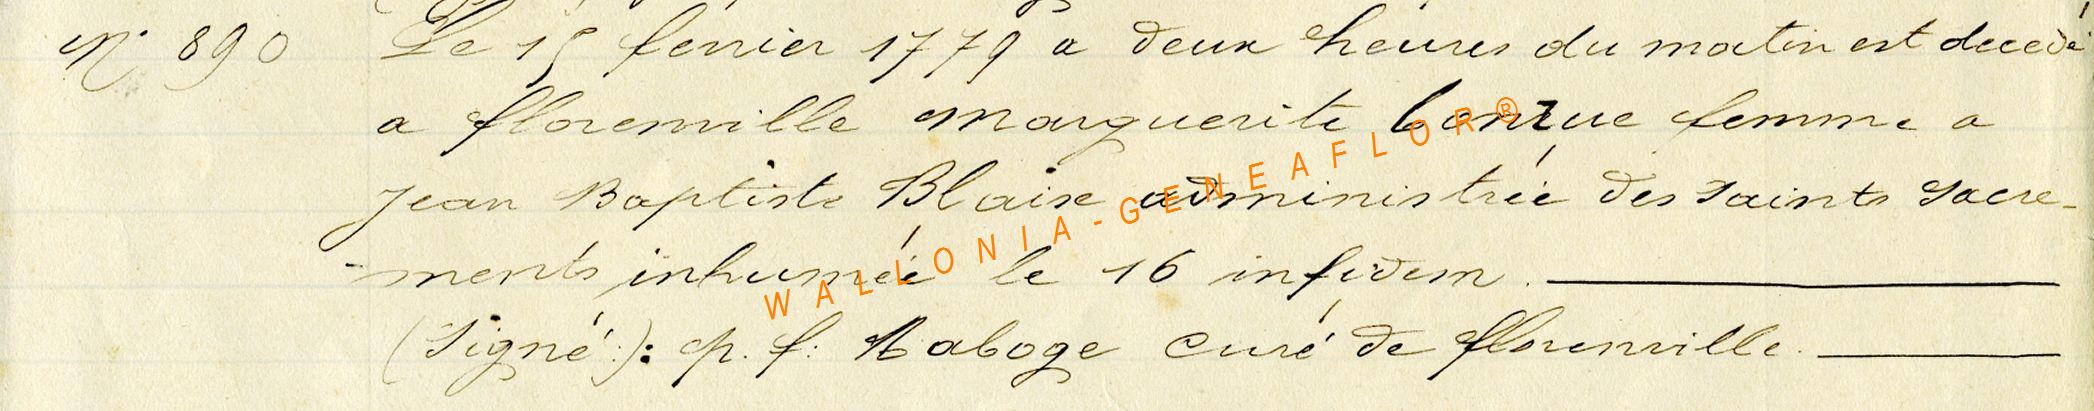 N° 890 Le 15 fevrier 1779 a deux heures du matin est decedé
a florenville Marguerite femme a
Jean Baptiste Blaise administrée des Saints Sacre-
ments inhumée le 16 infidem.
(Signé:): p. f. Raboge curé de florenville.
WALLONIA-GENEAFLOR®